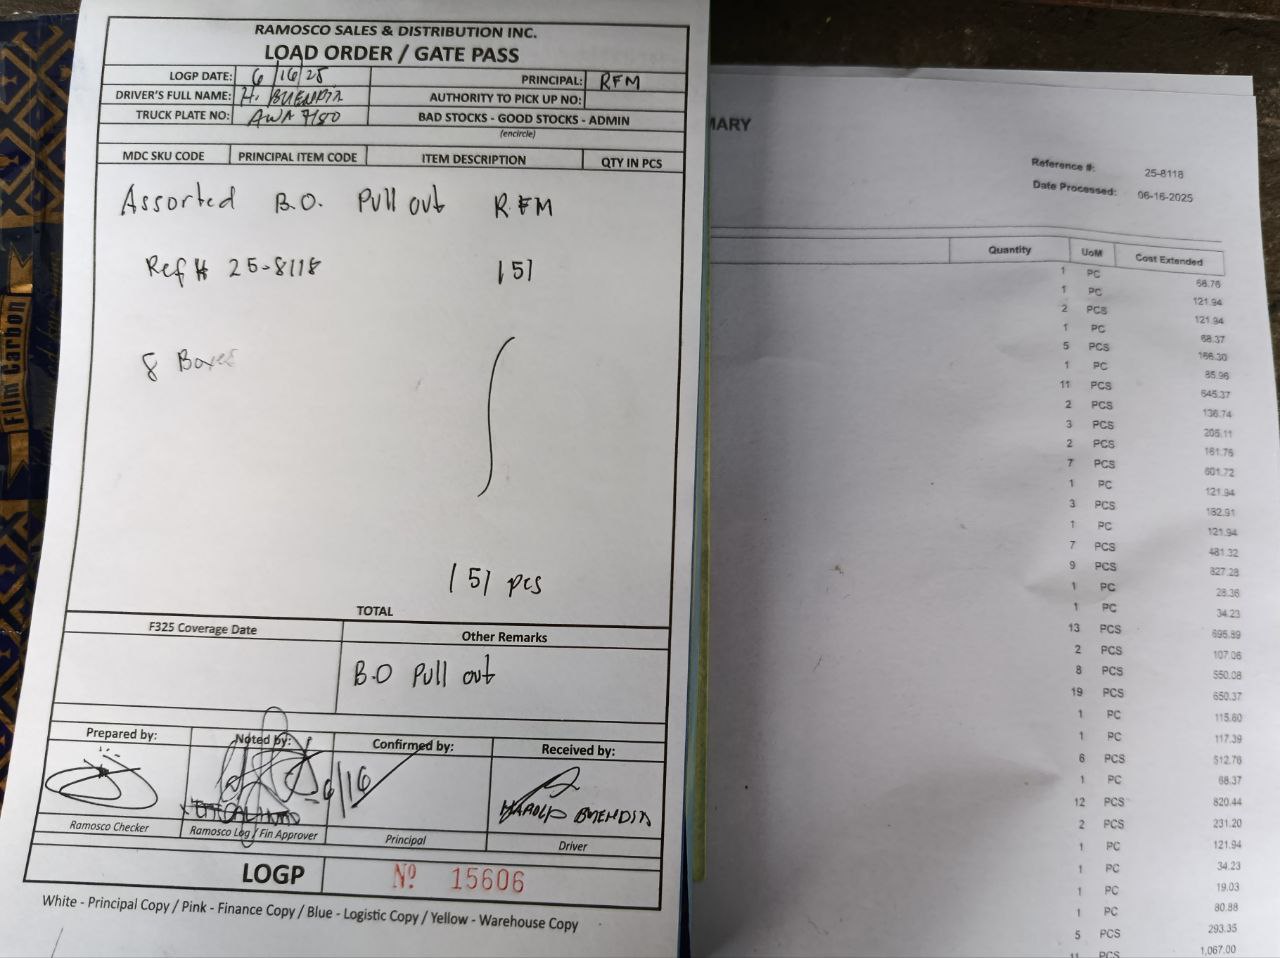 RAMOSCO SALES & DISTRIBUTION INC.
LOAD ORDER / GATE PASS
LOGP DATE: 6/16/25
PRINCIPAL: RFM
DRIVER'S FULL NAME: H. BUENDIA
AUTHORITY TO PICK UP NO:
TRUCK PLATE NO: AWA 7180
BAD STOCKS - GOOD STOCKS - ADMIN
(encircle)
MDC SKU CODE PRINCIPAL ITEM CODE ITEM DESCRIPTION QTY IN PCS
Assorted B.O. Pull out RFM
Ref # 25-8118 151
8 Boxes
151 pcs
TOTAL
F325 Coverage Date Other Remarks
B.O Pull out
Prepared by: Noted by: Confirmed by: Received by:
6/16
HAROLD BUENDIA
Ramosco Checker Ramosco Log / Fin Approver Principal Driver
LOGP Nº 15606
White - Principal Copy / Pink - Finance Copy / Blue - Logistic Copy / Yellow - Warehouse Copy
MARY
Reference #: 25-8118
Date Processed: 06-16-2025
Quantity UoM Cost Extended
1 PC 68.76
1 PC 121.94
2 PCS 121.94
1 PC 68.37
5 PCS 166.30
1 PC 85.96
11 PCS 645.37
2 PCS 136.74
3 PCS 205.11
2 PCS 161.76
7 PCS 601.72
1 PC 121.94
3 PCS 182.91
1 PC 121.94
7 PCS 481.32
9 PCS 827.28
1 PC 28.36
1 PC 34.23
13 PCS 695.89
2 PCS 107.06
8 PCS 550.08
19 PCS 650.37
1 PC 115.60
1 PC 117.39
6 PCS 512.76
1 PC 68.37
12 PCS 820.44
2 PCS 231.20
1 PC 121.94
1 PC 34.23
1 PC 19.03
1 PC 80.88
5 PCS 293.35
11 PCS 1,067.00
Film Carbon